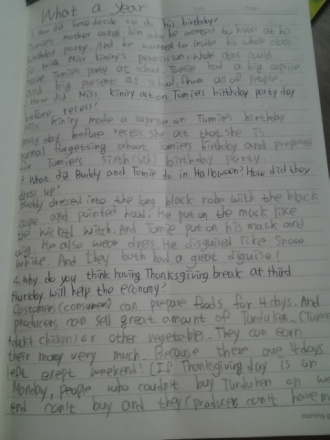 What a Year
1. How did Tomie decide to do his birthday?
Tomie's mother asked him who he wanted to have at his
birthday party. And he wanted to invite his whole class
with Miss Kiniry's permission.
Tomie's party at school. Tomie had a big surprise
big presents at school from all of people.
How did Miss Kiniry act on Tomie's birthday party day
before recess?
Kiniry made a surprise on Tomie's birthday
party day before recess she at that she is
forgetting about Tomie's birthday and prepared
Tomie's birthday party
3. What did Buddy and Tomie do in Halloween? How did they
dress up?
Buddy dressed into the long black robe with the black
cape and pointed hood. He put on the mask like
the wicked witch. And Tomie put on his mask and
wig. He also wear dress. He disguised like Snow
white. And they both had a great disguise!
4. Why do you think having Thanksgiving break at third
thursday will help the economy?
Costumers (consumer) can prepare foods for 4 days. And
producers can sell great amount of Turduken (Turkey
chiken) or other vegetables. They can earn
their money very much. Because there are 4 days
exept weekend! (If Thanksgiving day is on
Monday, people who couldn't buy Turduken on
end can't buy and they (producers can't have m